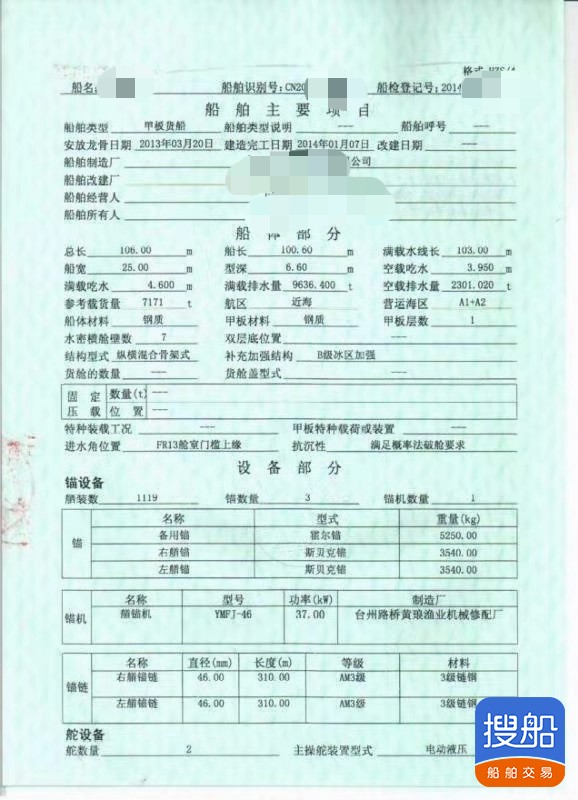 船名:
船舶识别号:CN20
船检登记号:2014
船舶主要项目
船舶类型 甲板货船 船舶类型说明 --- 船舶呼号 ---
安放龙骨日期 2013年03月20日 建造完工日期 2014年01月07日 改建日期 ---
船舶制造厂 公司
船舶改建厂
船舶经营人
船舶所有人
船体部分
总长 106.00 m 船长 100.60 m 满载水线长 103.00 m
船宽 25.00 m 型深 6.60 m 空载吃水 3.950 m
满载吃水 4.600 m 满载排水量 9636.400 t 空载排水量 2301.020 t
参考载货量 7171 t 航区 近海 营运海区 A1+A2
船体材料 钢质 甲板材料 钢质 甲板层数 1
水密横舱壁数 7 双层底位置 ---
结构型式 纵横混合骨架式 补充加强结构 B级冰区加强
货舱的数量 --- 货舱盖型式 ---
固定压载 数量(t) ---
位置 ---
特种装载工况 --- 甲板特种载荷或装置 ---
进水角位置 FR13舱室门槛上缘 抗沉性 满足概率法破舱要求
设备部分
锚设备
舾装数 1119 锚数量 3 锚机数量 1
锚
名称 型式 重量(kg)
备用锚 霍尔锚 5250.00
右艏锚 斯贝克锚 3540.00
左艏锚 斯贝克锚 3540.00
锚机
名称 型号 功率(kW) 制造厂
艏锚机 YMFJ-46 37.00 台州路桥黄琅渔业机械修配厂
锚链
名称 直径(mm) 长度(m) 等级 材料
右艏锚链 46.00 310.00 AM3级 3级链钢
左艏锚链 46.00 310.00 AM3级 3级链钢
舵设备
舵数量 2 主操舵装置型式 电动液压
搜船
船舶交易